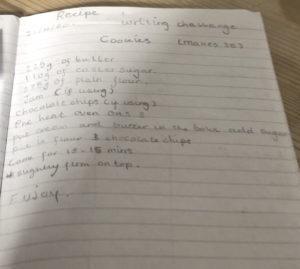 Recipe writing challenge
Cookies (makes 30)
225g of butter
110g of caster sugar
275g of plain flour
Jam (if using)
chocolate chips (if using)
Pre heat oven Gas
Put cream and butter in the bowl add sugar
put in flour & chocolate chips
for 10-15 mins
slightly firm on top.
Enjoy.